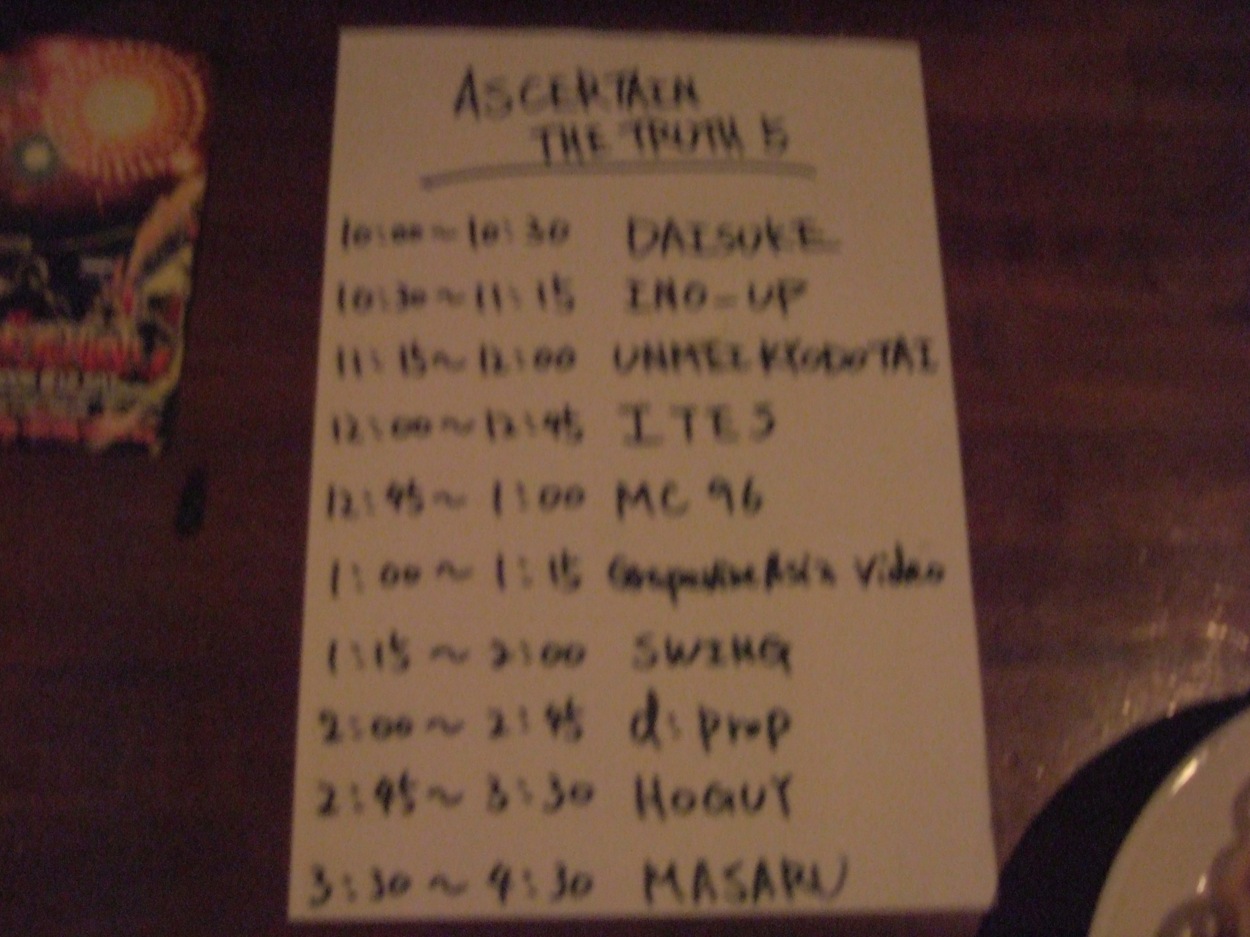 ASCERTAIN
THE TRUTH 5
10:00~10:30 DAISUKE
10:30~11:15 INO-UP
11:15~12:00 UNMEI KYODOTAI
12:00~12:45 ITES
12:45~1:00 MC 96
1:00~1:15 Grapevine Asia Video
1:15~2:00 SWING
2:00~2:45 d:prop
2:45~3:30 HOGUY
3:30~4:30 MASARU